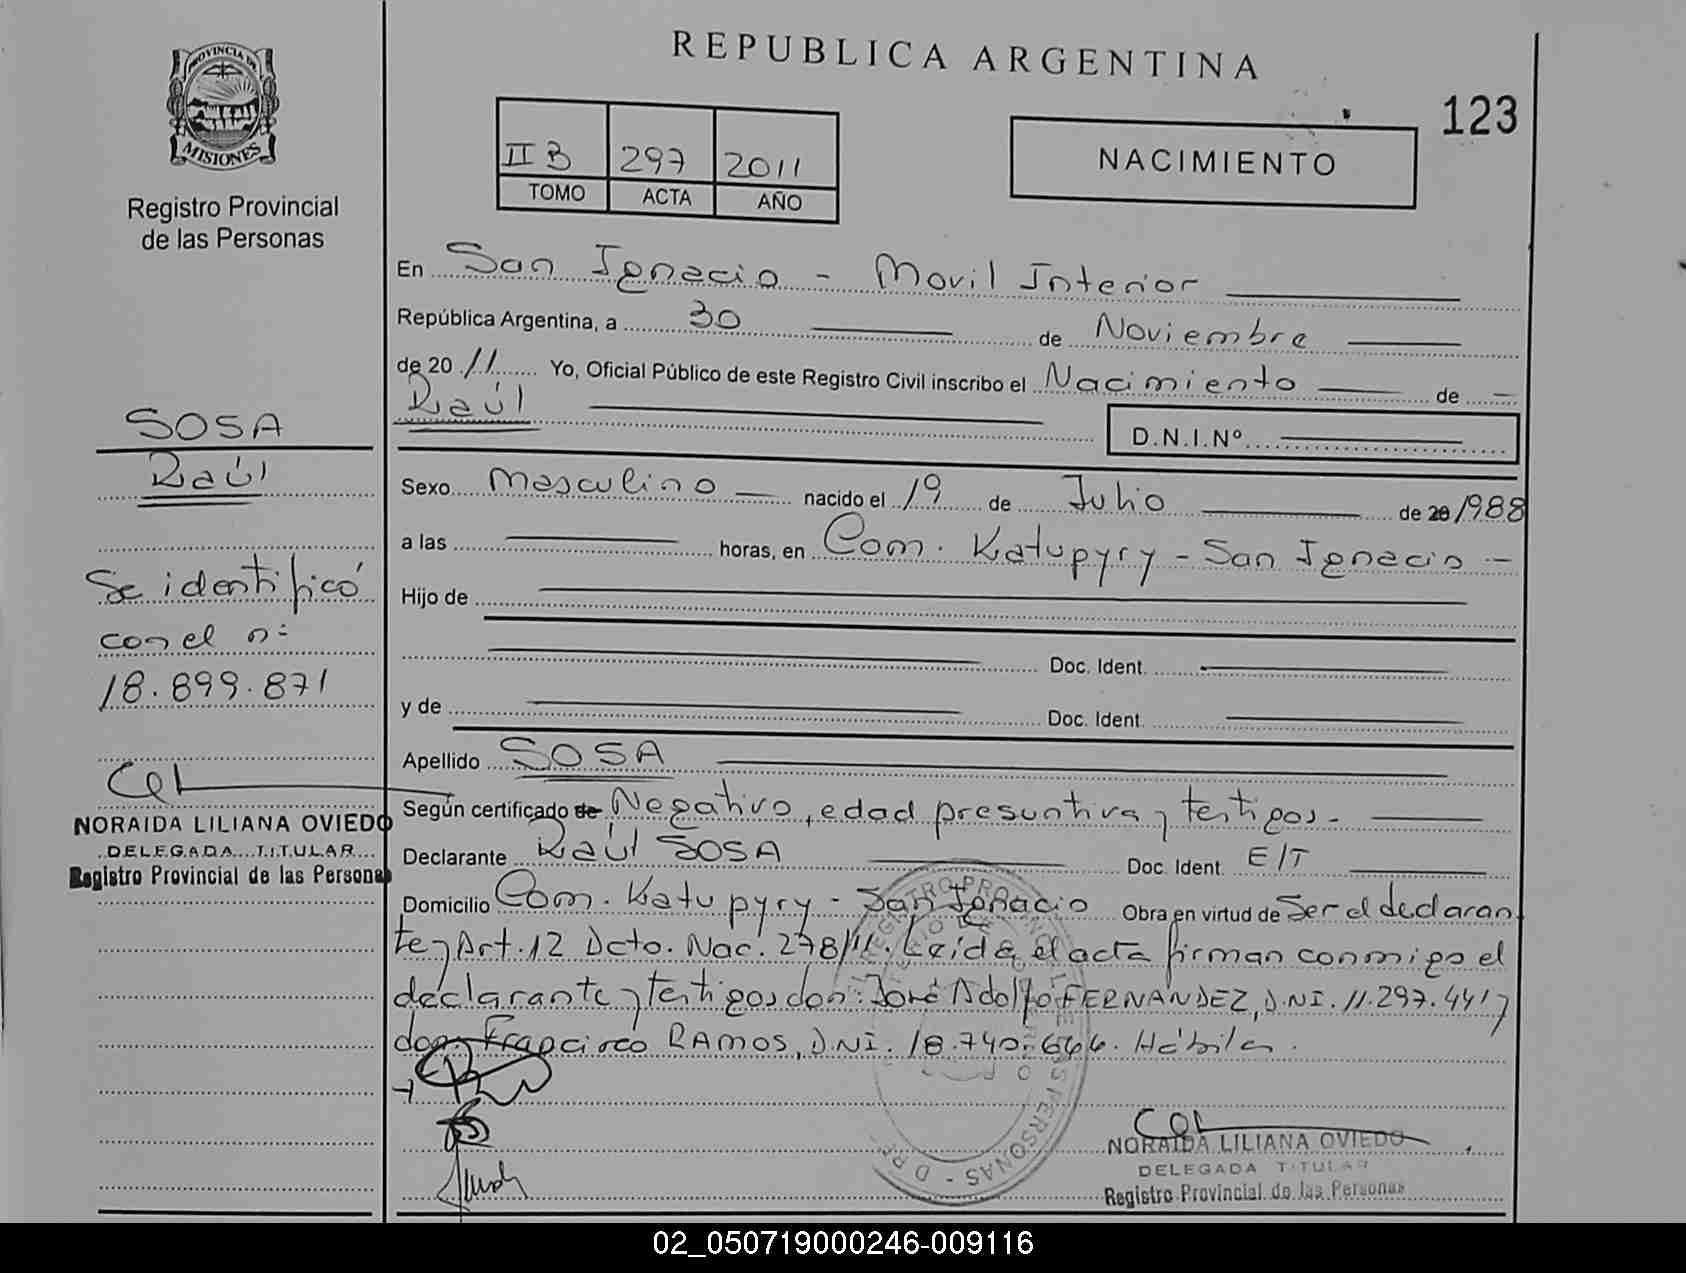 REPUBLICA ARGENTINA
123
PROVINCIA DE
MISIONES
Registro Provincial
de las Personas
II B 297 2011
TOMO ACTA AÑO
NACIMIENTO
En San Ignacio - Movil Interior
República Argentina, a 30 de Noviembre
de 20 11 Yo, Oficial Público de este Registro Civil inscribo el Nacimiento de
Raúl
D.N.I.Nº
SOSA
Raúl
Se identificó
con el nº
18.899.871
NORAIDA LILIANA OVIEDO
DELEGADA TITULAR
Registro Provincial de las Personas
Sexo Masculino nacido el 19 de Julio de 20 1988
a las horas, en Com. Katupyry - San Ignacio -
Hijo de
Doc. Ident.
y de Doc. Ident.
Apellido SOSA
Según certificado de Negativo, edad presuntiva y testigos.
Declarante Raúl SOSA Doc. Ident. E/T
Domicilio Com. Katupyry - San Ignacio Obra en virtud de Ser el declaran
te y Art. 12 Dcto. Nac. 278/11. Leída el acta firman conmigo el
declarante y testigos don: José Adolfo FERNANDEZ, D.N.I. 11.297.441 y
don Francisco RAMOS, D.N.I. 18.740.666. Hábiles.
NORAIDA LILIANA OVIEDO
DELEGADA TITULAR
Registro Provincial de las Personas
02_050719000246-009116